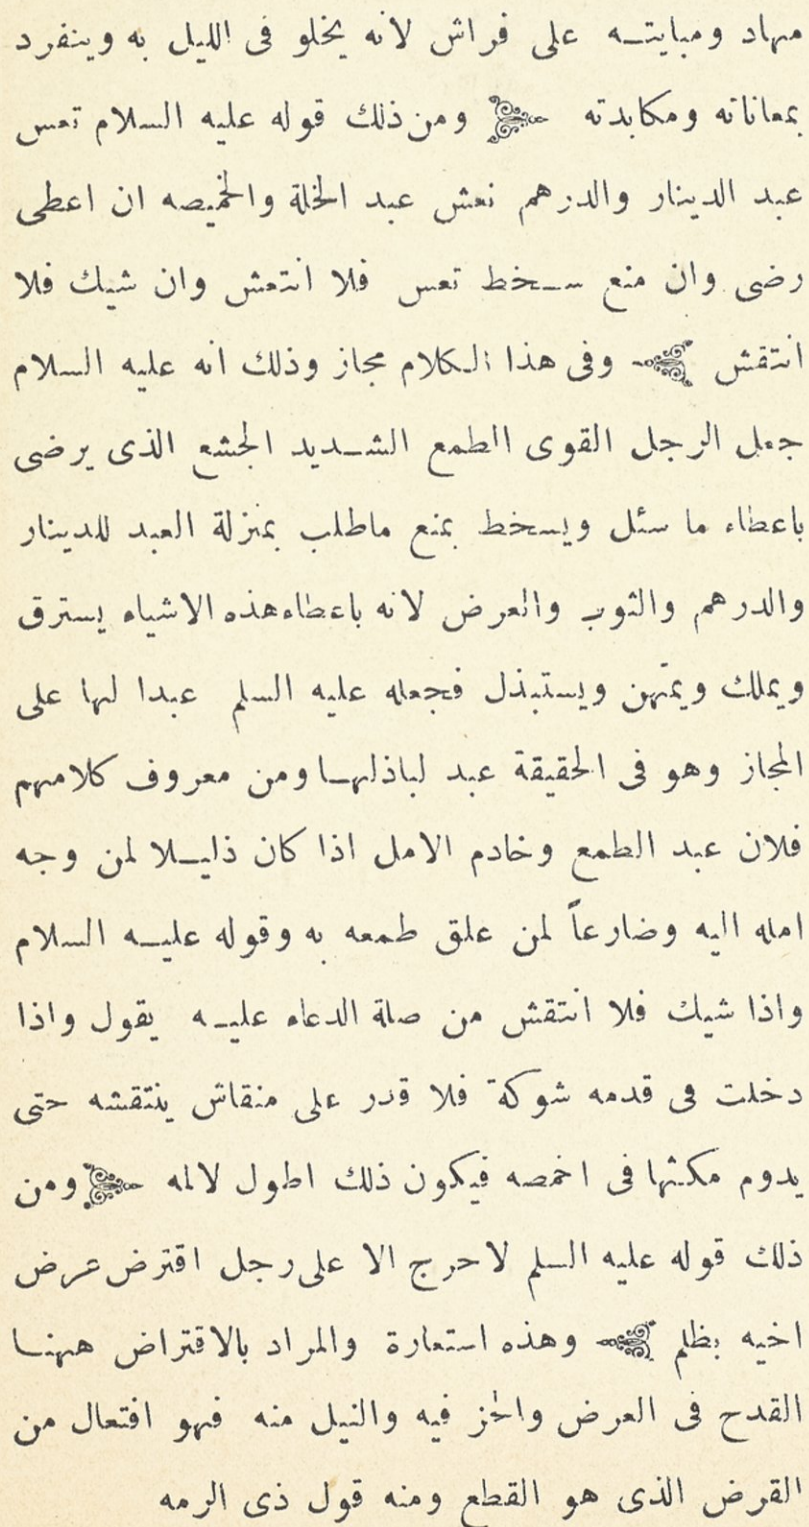 مهاد ومبايتـه على فراش لانه يخلو فى الليل به وينفرد
بمعاناته ومكابدته ومن ذلك قوله عليه السلام تعس
عبد الدينار والدرهم نعش عبد الخلة والخميصه ان اعطى
رضى وان منع سـخط تعس فلا انتعش وان شيك فلا
انتقش وفى هذا الكلام مجاز وذلك انه عليه السلام
جعل الرجل القوى الطمع الشـديد الجشع الذى يرضى
باعطاء ما سئل ويسخط بمنع ماطلب بمنزلة العبد للدينار
والدرهم والثوب والعرض لانه باعطاء هذه الاشياء يسترق
ويملك ويمتهن ويستبذل فجعله عليه السلم عبدا لها على
المجاز وهو فى الحقيقة عبد لباذلهـا ومن معروف كلامهم
فلان عبد الطمع وخادم الامل اذا كان ذليـلا لمن وجه
امله اليه وضارعاً لمن علق طمعه به وقوله عليـه السلام
واذا شيك فلا انتقش من صلة الدعاء عليـه يقول واذا
دخلت فى قدمه شوكة فلا قدر على منقاش ينتقشه حتى
يدوم مكثها فى اخمصه فيكون ذلك اطول لالمه ومن
ذلك قوله عليه السلم لاحرج الا على رجل اقترض عرض
اخيه بظلم وهذه استعارة والمراد بالاقتراض ههنـا
القدح فى العرض والحز فيه والنيل منه فهو افتعال من
القرض الذى هو القطع ومنه قول ذى الرمه